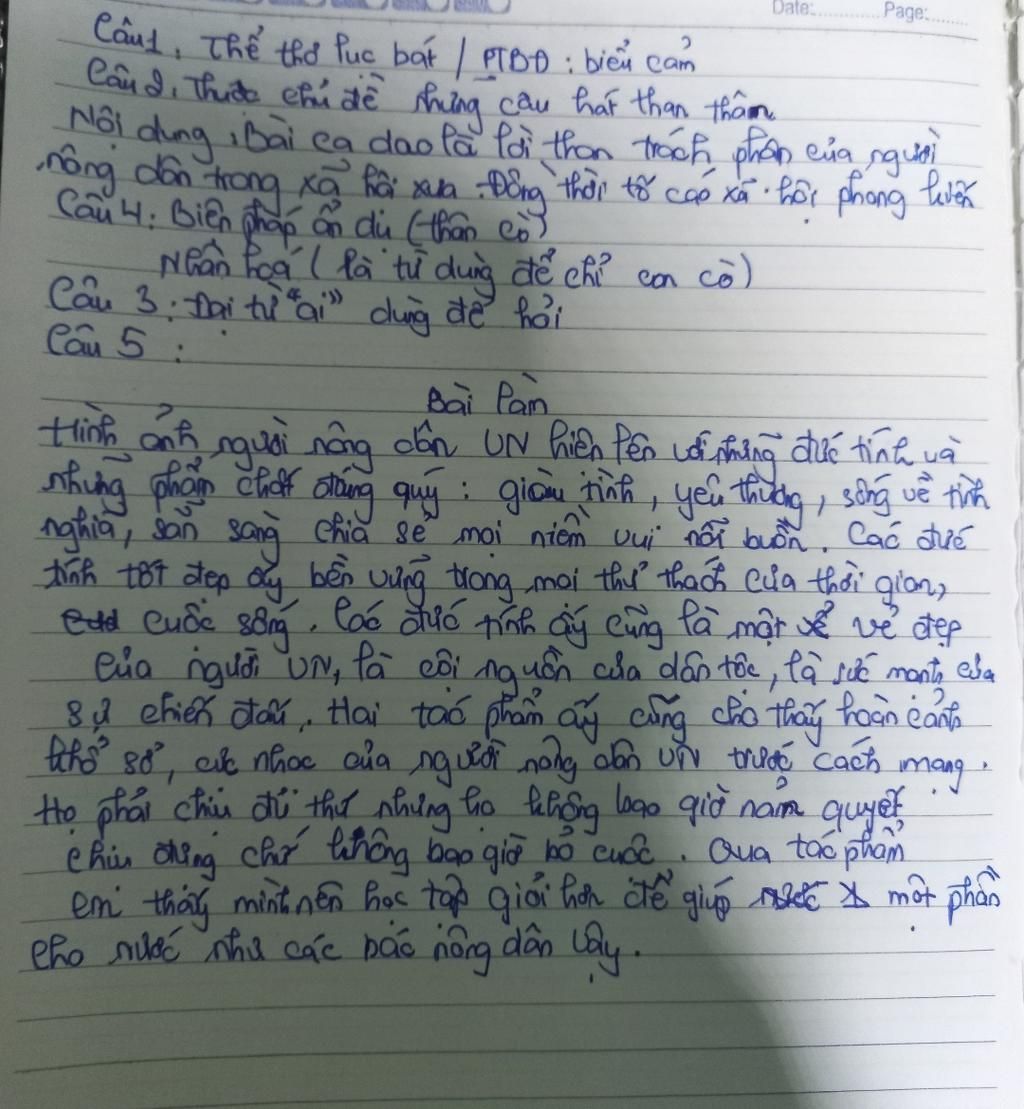 Date:............ Page:........
Câu1. Thể thơ lục bát / PTBĐ : biểu cảm
Câu 2. Thuộc chủ đề những câu hát than thân
Nội dung. Bài ca dao là lời than trách phận của người
nông dân trong xã hội xưa. Đồng thời tố cáo xã hội phong kiến
Câu 4: Biện pháp ẩn dụ (thân cò)
Nhân hoá ( là từ dùng để chỉ con cò)
Câu 3 : Đại từ "ai" dùng để hỏi
Câu 5 :
Bài làm
Hình ảnh người nông dân VN hiện lên với những đức tính và
những phẩm chất đáng quý : giàu tình, yêu thương, sống về tình
nghĩa, sẵn sàng chia sẻ mọi niềm vui nỗi buồn. Các đức
tính tốt đẹp ấy bền vững trong mọi thử thách của thời gian,
cuộc sống. Các đức tính ấy cũng là một vẻ đẹp
của người VN, là cội nguồn của dân tộc, là sức mạnh của
sự chiến đấu. Hai tác phẩm ấy cũng cho thấy hoàn cảnh
khổ sở, cực nhọc của người nông dân VN trước cách mạng.
Họ phải chịu đủ thứ nhưng họ không bao giờ nằm quyết
chịu đựng chứ không bao giờ bỏ cuộc. Qua tác phẩm
em thấy mình nên học tập giỏi hơn để giúp một phần
cho nước như các bác nông dân vậy.